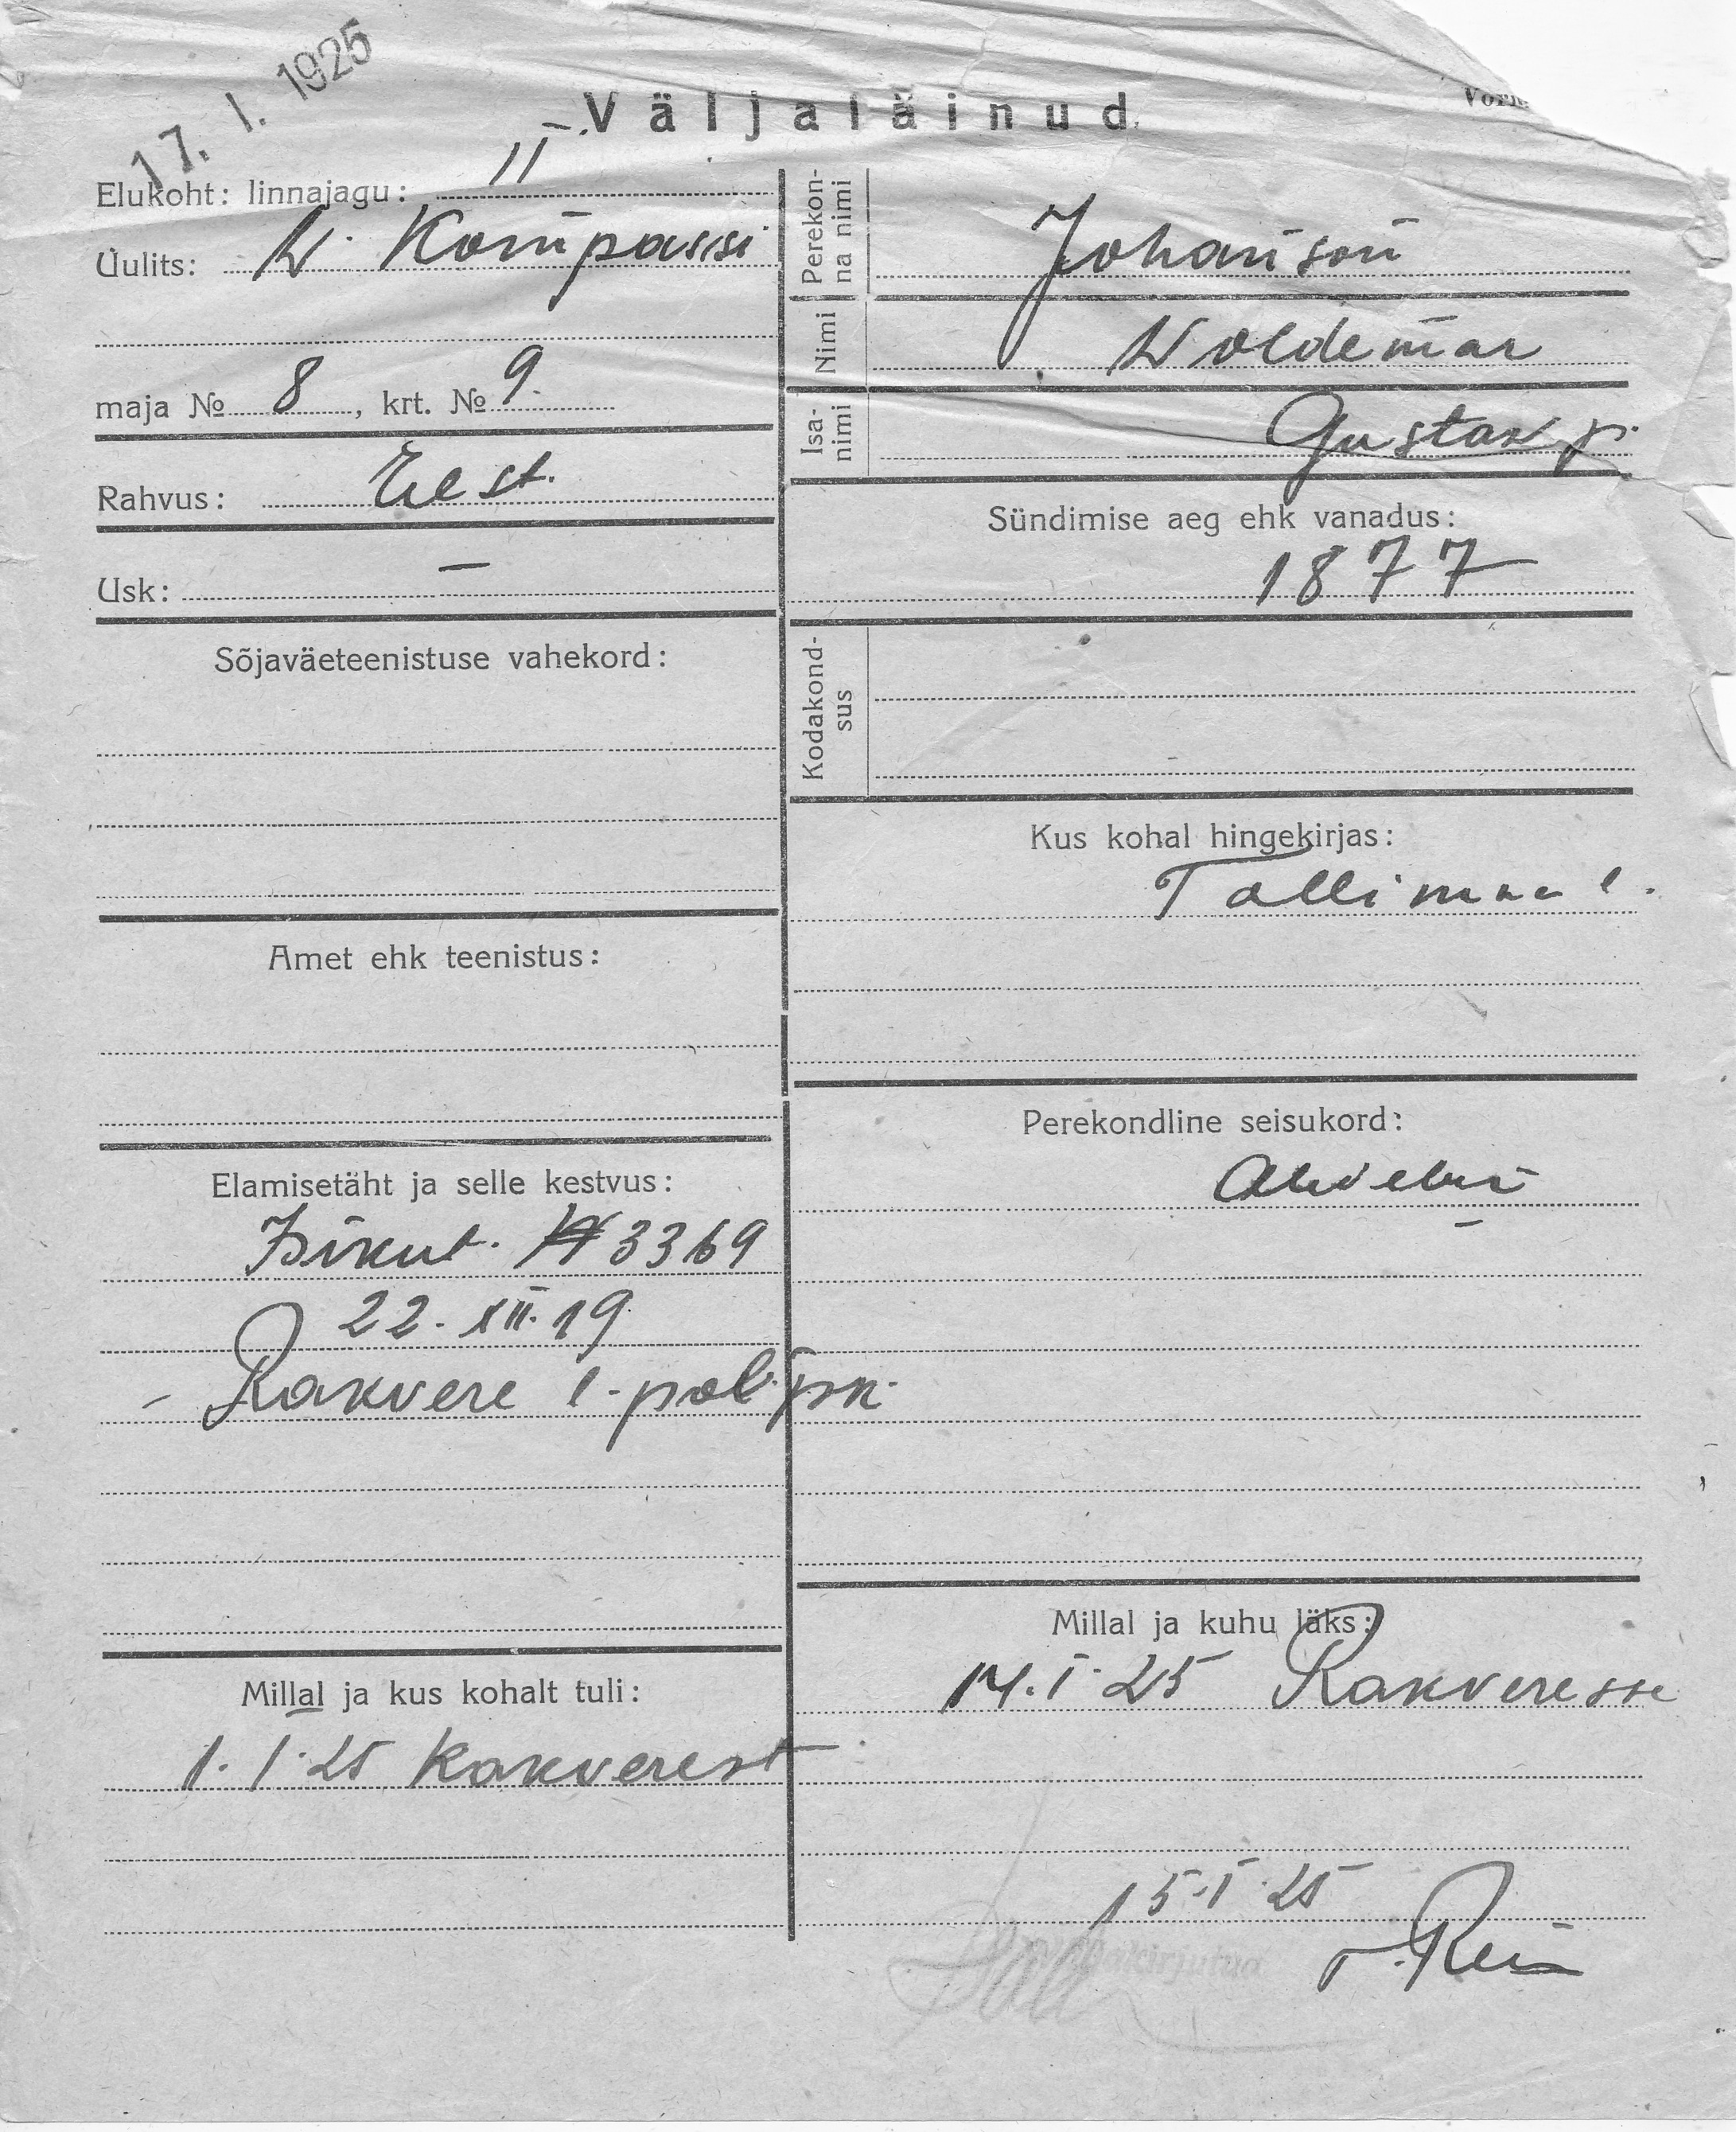 17. I. 1925
Väljaläinud
Vorm
Elukoht: linnajagu: II
Üulits: W. Kompassi
maja № 8, krt. № 9.
Rahvus: Eest.
Usk: —
Sõjaväeteenistuse vahekord:
Amet ehk teenistus:
Elamisetäht ja selle kestvus:
Isikut. № 3369
22. XII. 19
Rakvere l. pol. jsk.
Millal ja kus kohalt tuli:
1. I 25 Rakverest
Perekonna nimi
Johanson
Nimi
Woldemar
Isanimi
Gustav p.
Sündimise aeg ehk vanadus:
1877
Kodakondsus
Kus kohal hingekirjas:
Tallinna l.
Perekondline seisukord:
Millal ja kuhu läks:
14. I 25 Rakveresse
15. I 25